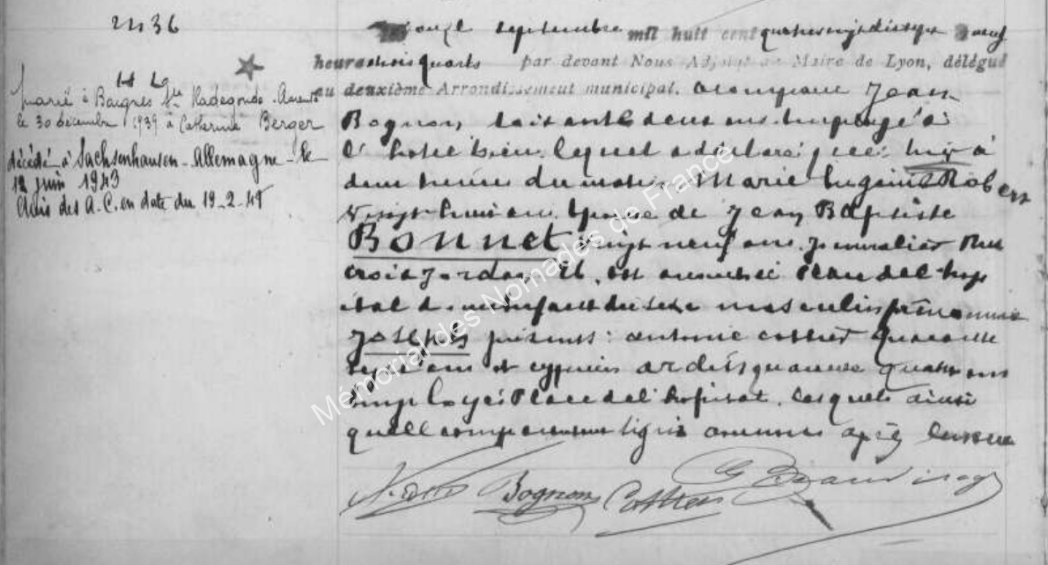 2436
marié à Baignes Ste Radegonde
le 30 décembre 1939 à Catherine Berger
décédé à Sachsenhausen - Allemagne - le
12 juin 1943
Avis des A.C. en date du 19-2-
onze septembre mil huit cent quatrevingtdixsept neuf
heures trois quarts par devant Nous Adjoint au Maire de Lyon, délégué
au deuxième Arrondissement municipal. a comparu Jean
Bognon, soixante deux ans employé à
l'hotel Dieu lequel a déclaré que: hier à
deux heures du matin Marie Eugénie Robert
vingt huit ans épouse de Jean Baptiste
Bonnet vingt neuf ans, journalier rue
croix Jordan, est accouchée Place de l'hop
ital d'un enfant du sexe masculin prénommé
Joseph présents: antoine cottier quarante
ans et cyprien quarante quatre ans
employés Place de l'hopital. Lesquels ainsi
que le comparant ont signé avec nous après lecture
Bognon Cottier
Mémorial des Nomades de France